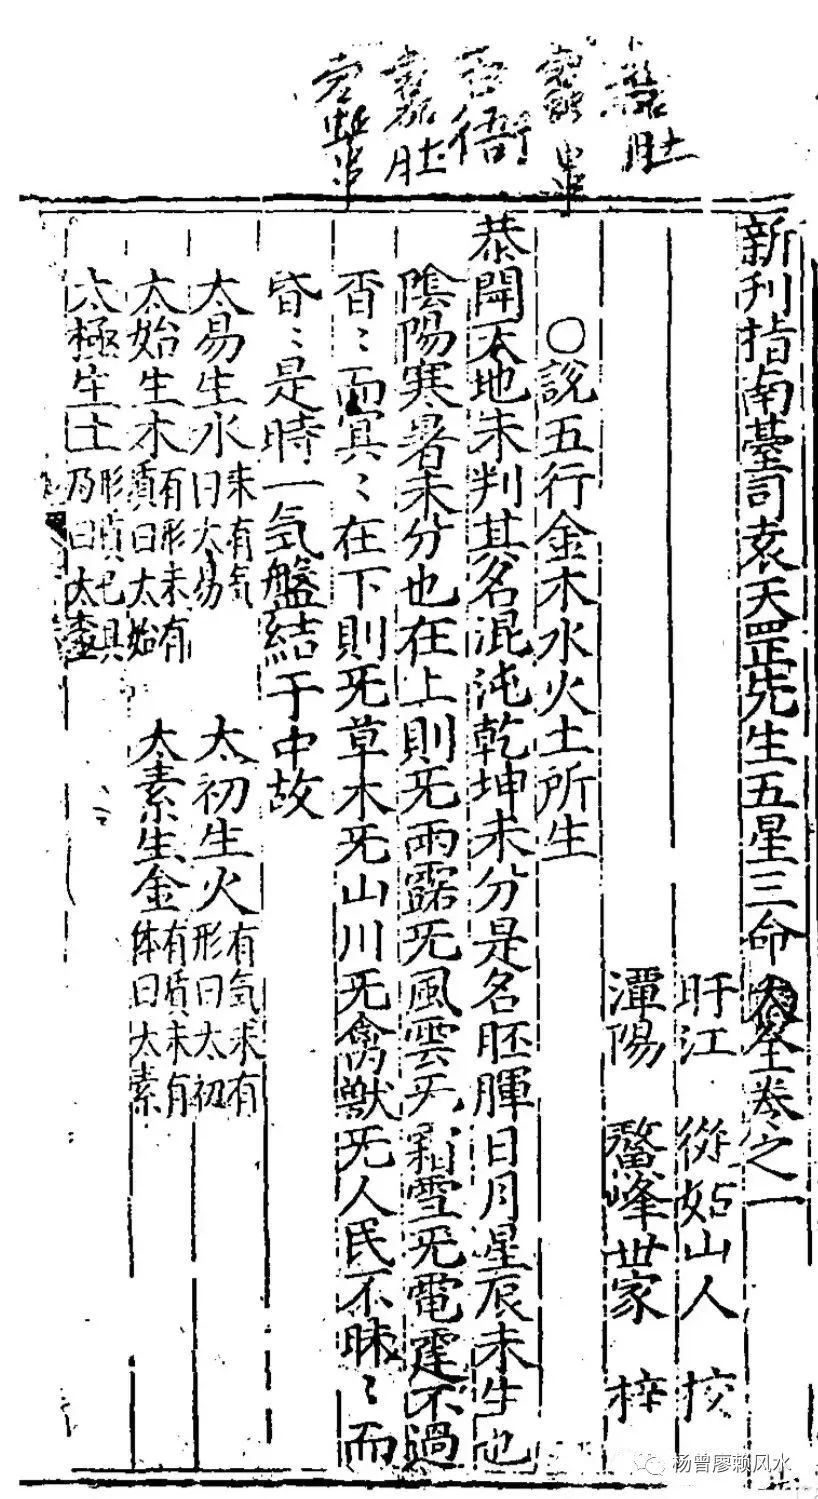 新刊指南臺司袁天罡先生五星三命大全卷之一
盱江 從姑山人 校
潭陽 鰲峰世家 梓
○說五行金木水火土所生
恭聞天地未判其名混沌乾坤未分是名胚腪日月星辰未生也
陰陽寒暑未分也在上則旡雨露旡風雲旡霜雪旡電霆不過
杳〻而冥〻在下則旡草木旡山川旡禽獸旡人民不昧〻而
昏〻是時一気盤結于中故
太易生水未有気曰太易 太初生火有気未有形曰太初
太始生木有形未有質曰太始 太素生金有質未有体曰太素
太極生土形質已具乃曰太壺
杨曾廖赖风水